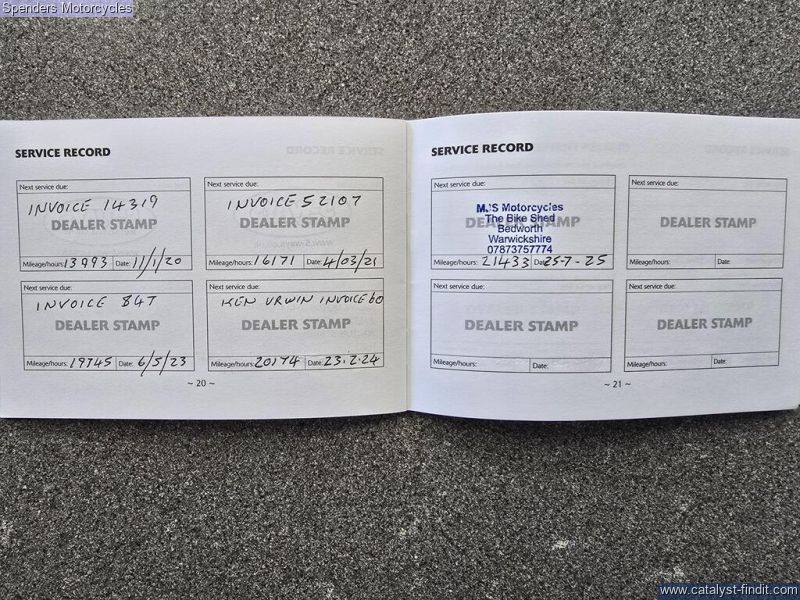 Spenders Motorcycles
SERVICE RECORD
Next service due:
INVOICE 14319
DEALER STAMP
Mileage/hours: 13993 Date: 11/1/20
Next service due:
INVOICE 52107
DEALER STAMP
Mileage/hours: 16171 Date: 4/03/21
Next service due:
INVOICE 847
DEALER STAMP
Mileage/hours: 19745 Date: 6/5/23
Next service due:
KEN URWIN INVOICE 60
DEALER STAMP
Mileage/hours: 20174 Date: 23.2.24
~ 20 ~
SERVICE RECORD
Next service due:
MJS Motorcycles
The Bike Shed
DEALER STAMP
Bedworth
Warwickshire
07873757774
Mileage/hours: 21433 Date: 25-7-25
Next service due:
DEALER STAMP
Mileage/hours: Date:
Next service due:
DEALER STAMP
Mileage/hours: Date:
Next service due:
DEALER STAMP
Mileage/hours: Date:
~ 21 ~
www.catalyst-findit.com